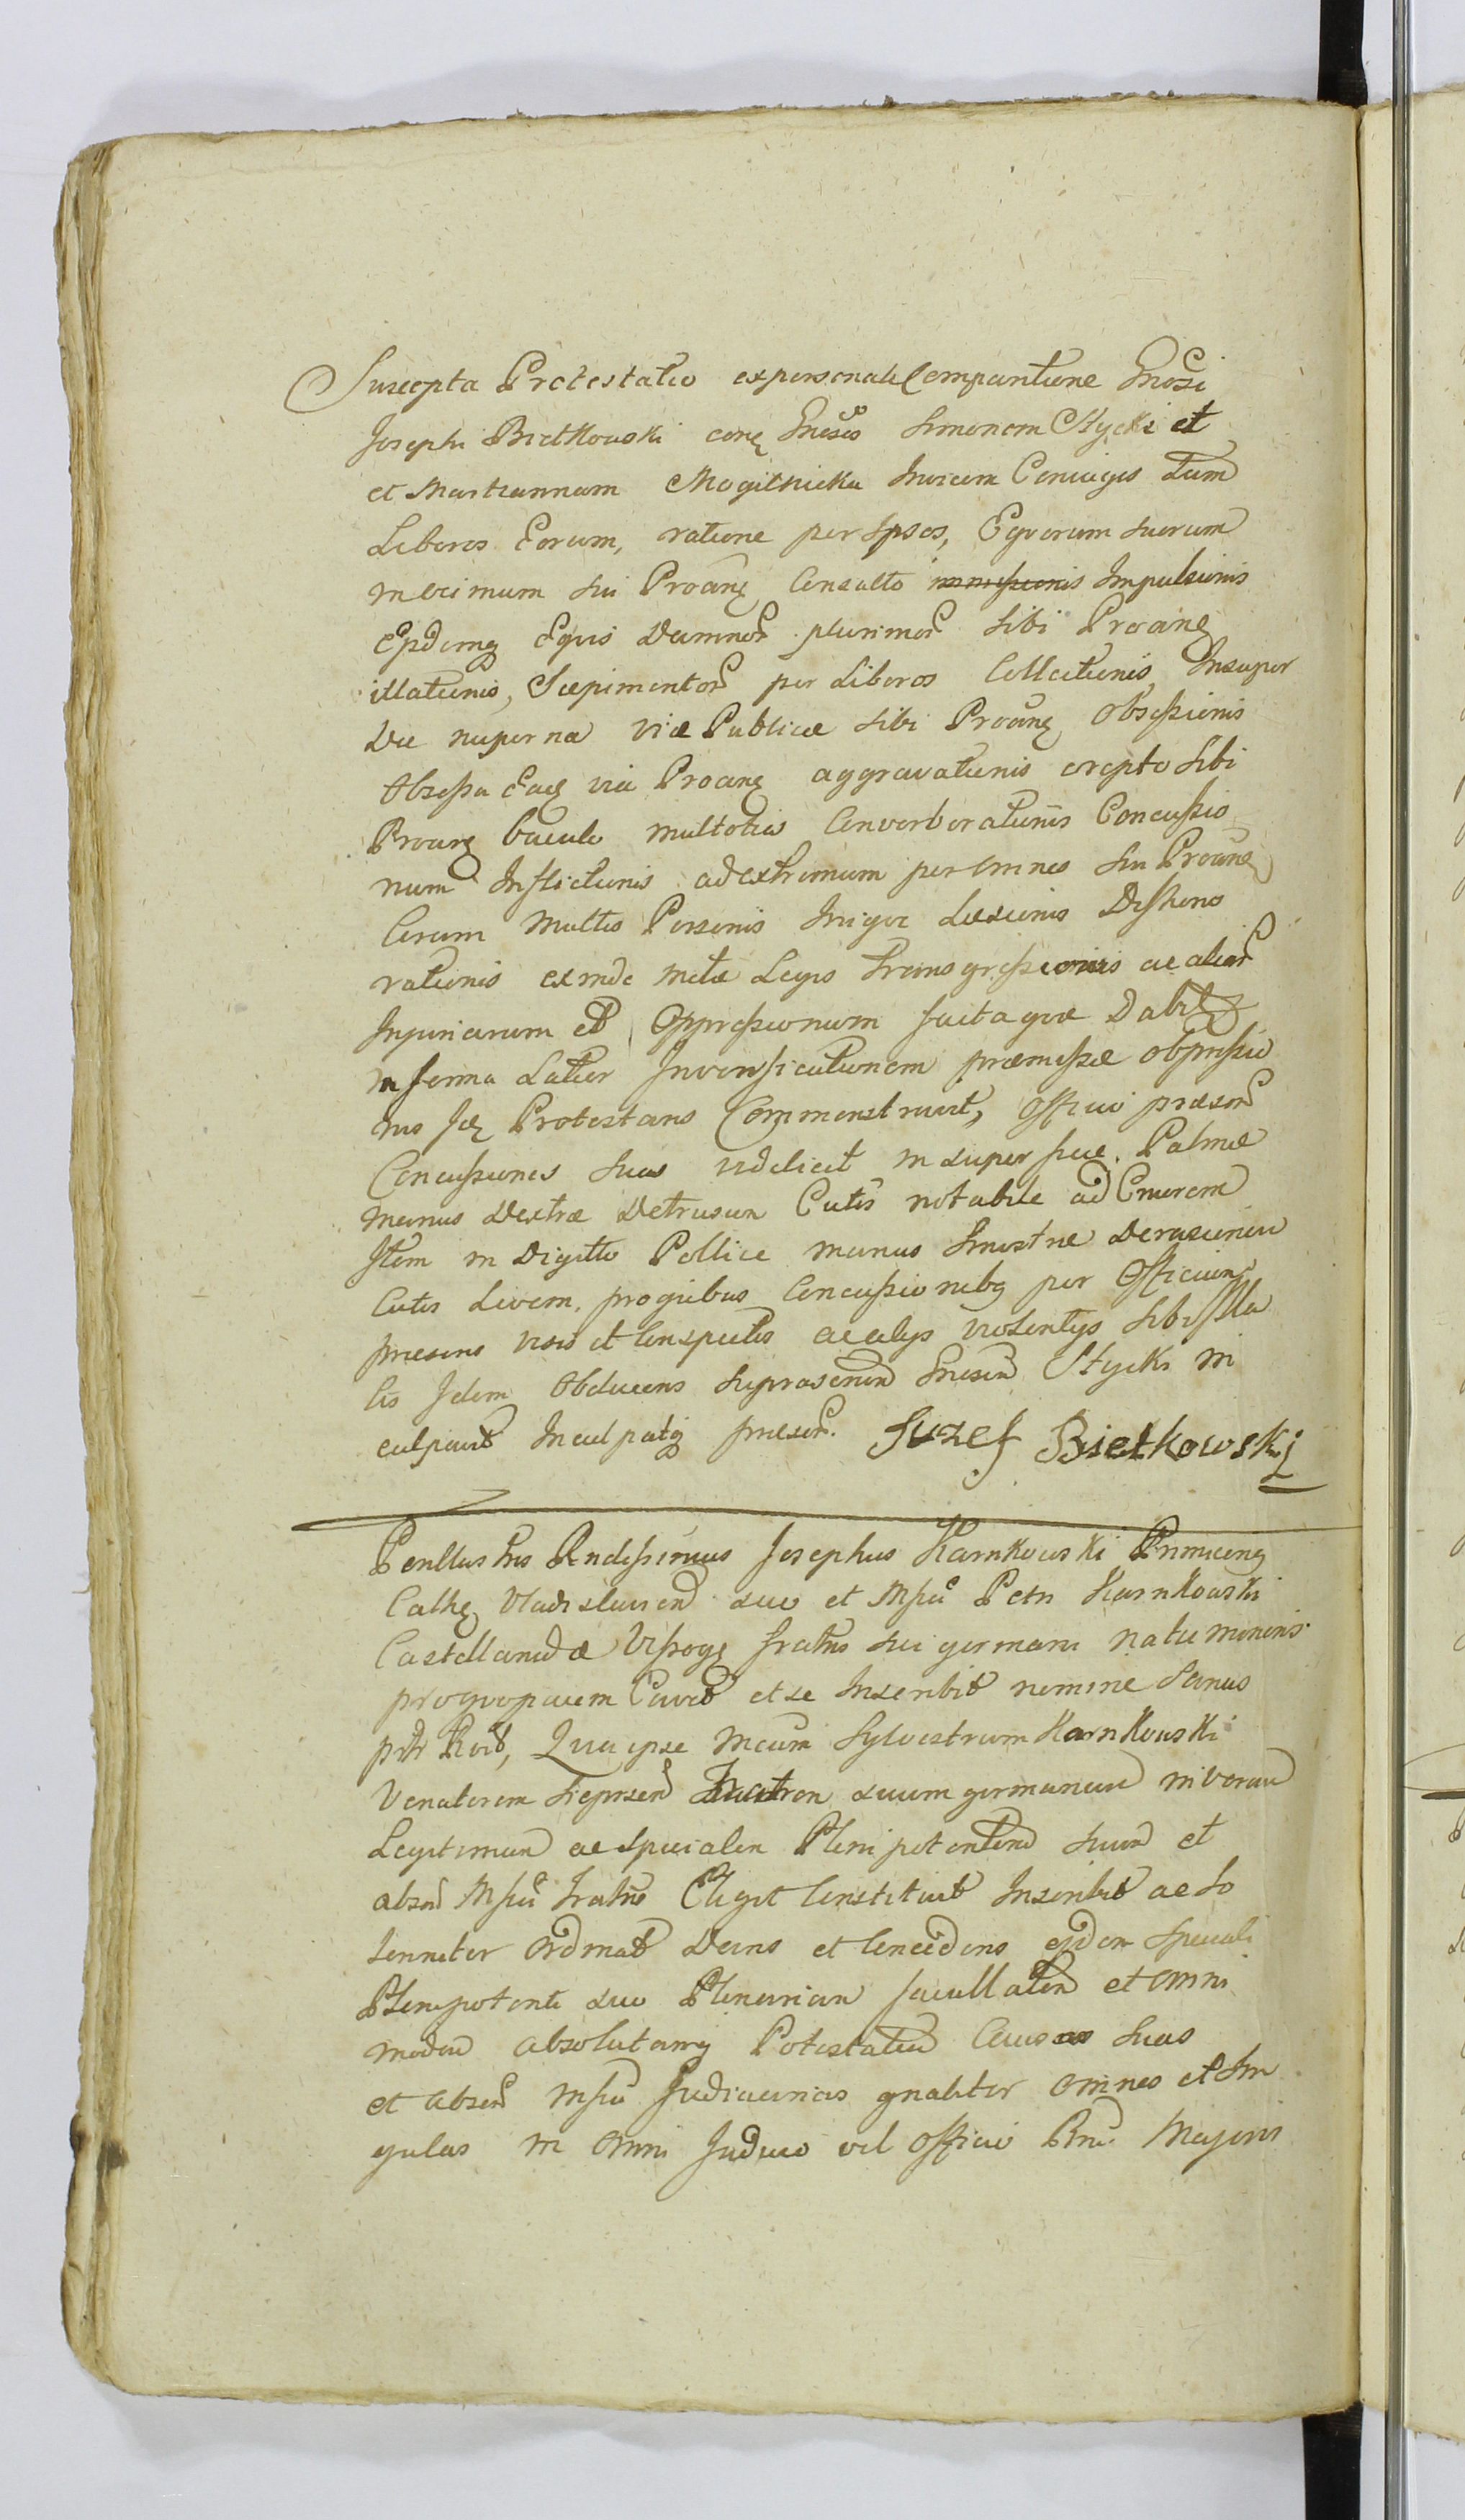 Suscepta Protestatio ex personali Comparitione Gnosi
Josephi Bietkowski cong Gnosos Simonem Stycki et
et Mariannam Mogilnicka Invicem Coniuges tum
Liberos Eorum, ratione per Ipsos, Equorum suorum
in Proang Consulto Impulsionis
Equis Damnor plurimor sibi Proang
illationis, Sepimentor per Liberos Collectionis, Insuper
Die nuperna viæ Publicæ sibi Proang Obsessionis
Obsessa Eag via Proang aggravationis erepto sibi
Proang baculo multoties Converberationis Concussio
num Inflictionis ad extremum per omnes sui Proang
Coram multis Personis Læsionis Dishono
rationis exinde metæ Legis transgressionis ac alior
Injuriarum et Oppressionum
in forma Latior In præmissæ oppressio
nis Protestans Commonstravit, Officio præsen
Concussiones suas videlicet in superficie Palmæ
manus Dextræ Detrusam Cutis notabile ad Cruorem
Item in Digitto Pollice manus Sinistræ Derasionem
Cutis Livem, pro quibus Concussionibg per Officium
præsens visis et Conspectis ac alys violentys sibi Illa
tis Idem Obducens suprascriptum Gnosum Stycki in
culpavit Inculpatg præsen. Juzef Bietkowski
Perillustris Rndissimus Josephus Karnkowski Primicerig
Cathg Vladislavien suo et Petri Karnkowski
Castellanidæ Vissogg fratris sui germani natu minoris
pro quo pacem Cavet et se Inscribit nomine Sanus
Quia ipse Mcum Sylvestrum Karnkowski
Venatorem Sieprsen Fratrem suum germanum in verum
Legitimum ac specialem Plenipotentem suum et
absen Mfci Fratris Elegit Constituit Inscribit ac So
lenniter Ordinat Dans et Concedens ejdem Speciali
Plenipotenti suo Plenariam facultatem et omni
modam absolutamg Potestatem Causas suas
et absen Mfci Judiciarias gnaliter omnes et Sin
gulas in omni Judicio vel Officio Rni Majoris